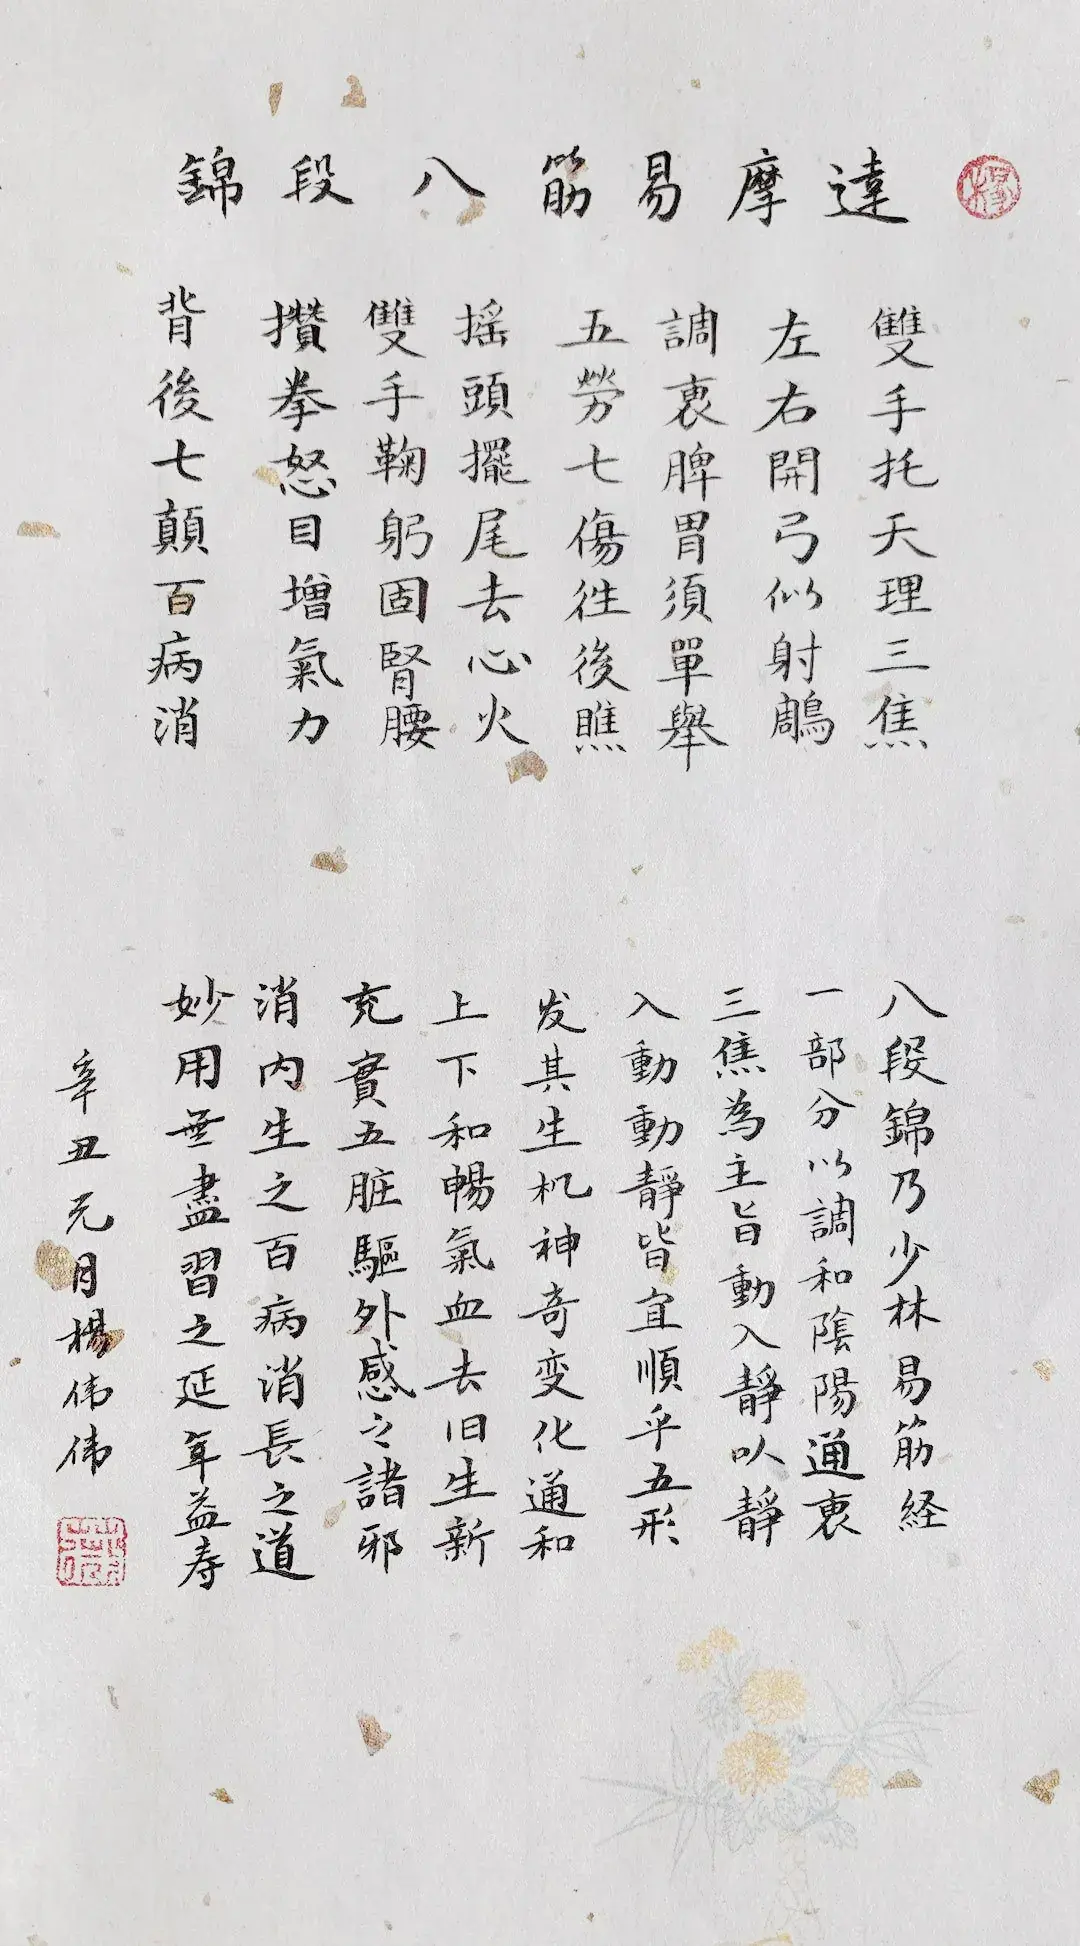 達摩易筋八段錦
雙手托天理三焦
左右開弓似射鵰
調衷脾胃須單舉
五勞七傷徃後瞧
摇頭擺尾去心火
雙手鞠躬固腎腰
攢拳怒目增氣力
背後七顛百病消
八段錦乃少林易筋経
一部分以調和陰陽通衷
三焦為主旨動入静以静
入動動静皆宜順乎五形
发其生机神奇变化通和
上下和暢氣血去旧生新
充實五脏驅外感之諸邪
消内生之百病消長之道
妙用無盡習之延年益寿
辛丑元月楊伟伟